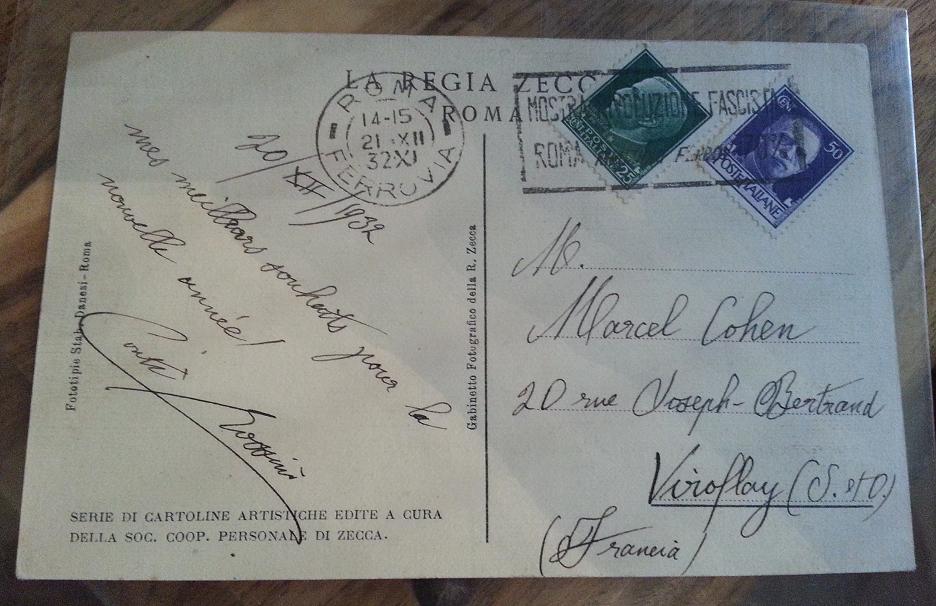 LA REGIA ZECC
ROMA
ROMA
14-15
21·XII
32XI
FERROVIA
MOSTRA RIVOLUZIONE FASCISTA
ROMA
25
50
POSTE ITALIANE
20/XII/1932
mes meilleurs souhaits pour la
nouvelle année!
Fototipie Stab. Danesi-Roma
Gabinetto Fotografico della R. Zecca
M.
Marcel Cohen
20 rue Joseph-Bertrand
Viroflay (S. et O.)
(Francia)
SERIE DI CARTOLINE ARTISTICHE EDITE A CURA
DELLA SOC. COOP. PERSONALE DI ZECCA.